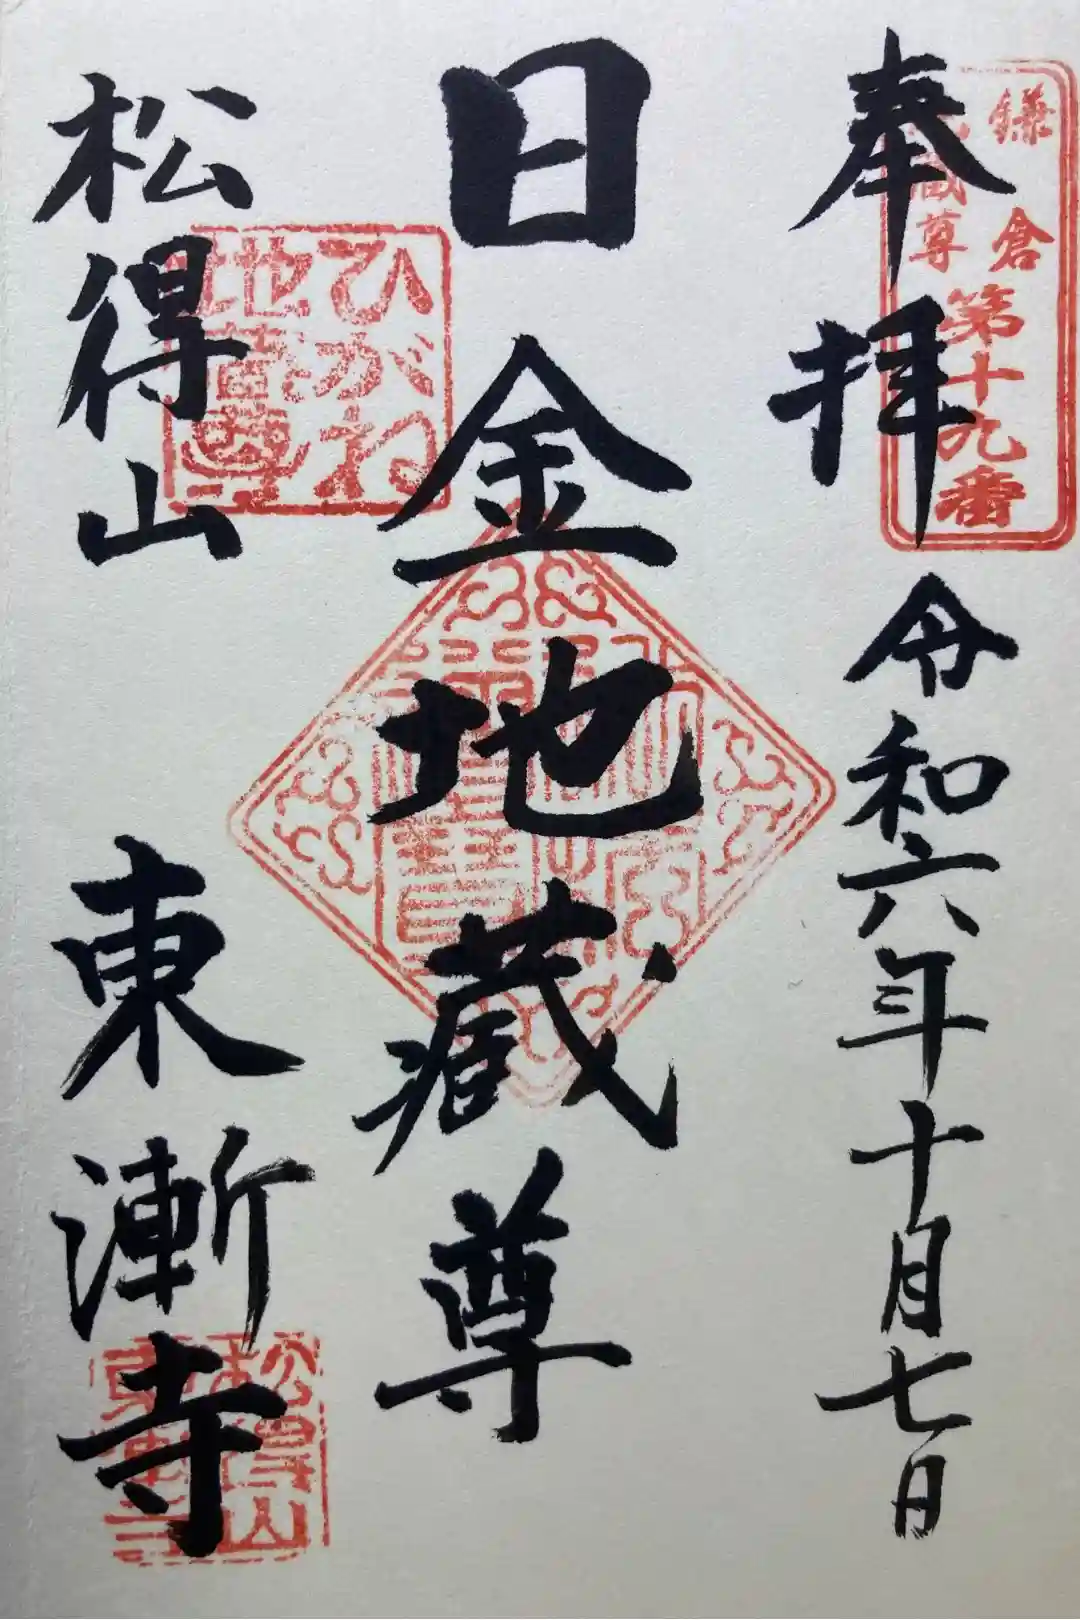 鎌倉
地蔵尊
第十九番
奉拝
令和六年十月七日
日金地蔵尊
ひがね
地蔵尊
松得山
東漸寺
松得山